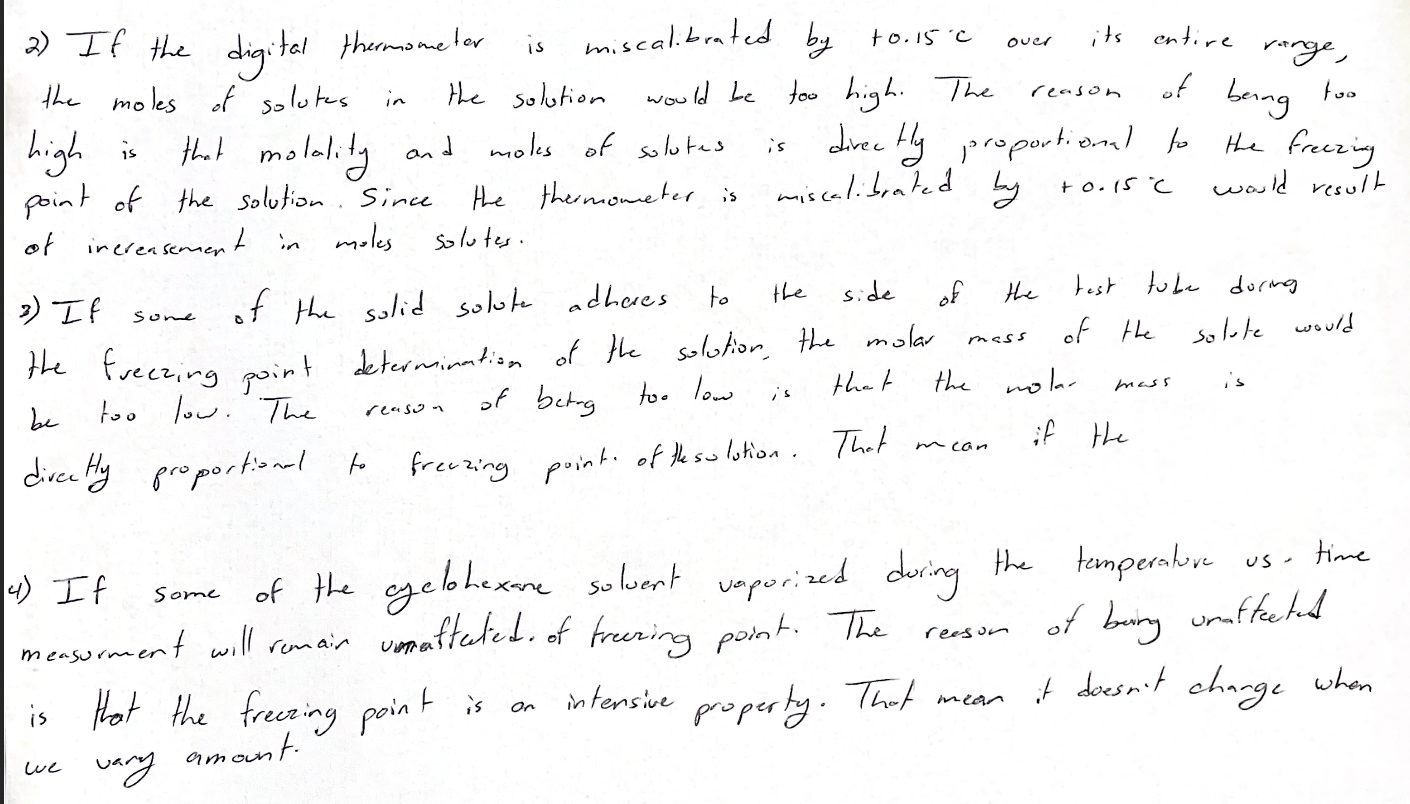 2) If the digital thermometer is miscalibrated by +0.15 °C over its entire range,
the moles of solutes in the solution would be too high. The reason of being too
high is that molality and moles of solutes is directly proportional to the freezing
point of the solution. Since the thermometer is miscalibrated by +0.15 °C would result
of increasement in moles solutes.
3) If some of the solid solute adheres to the side of the test tube during
the freezing point determination of the solution, the molar mass of the solute would
be too low. The reason of being too low is that the molar mass is
directly proportional to freezing point. of the solution. That mean if the
4) If some of the cyclohexane solvent vaporized during the temperature vs. time
measurment will remain unaffected. of freezing point. The reason of being unaffected
is that the freezing point is an intensive property. That mean it doesn't change when
we vary amount.